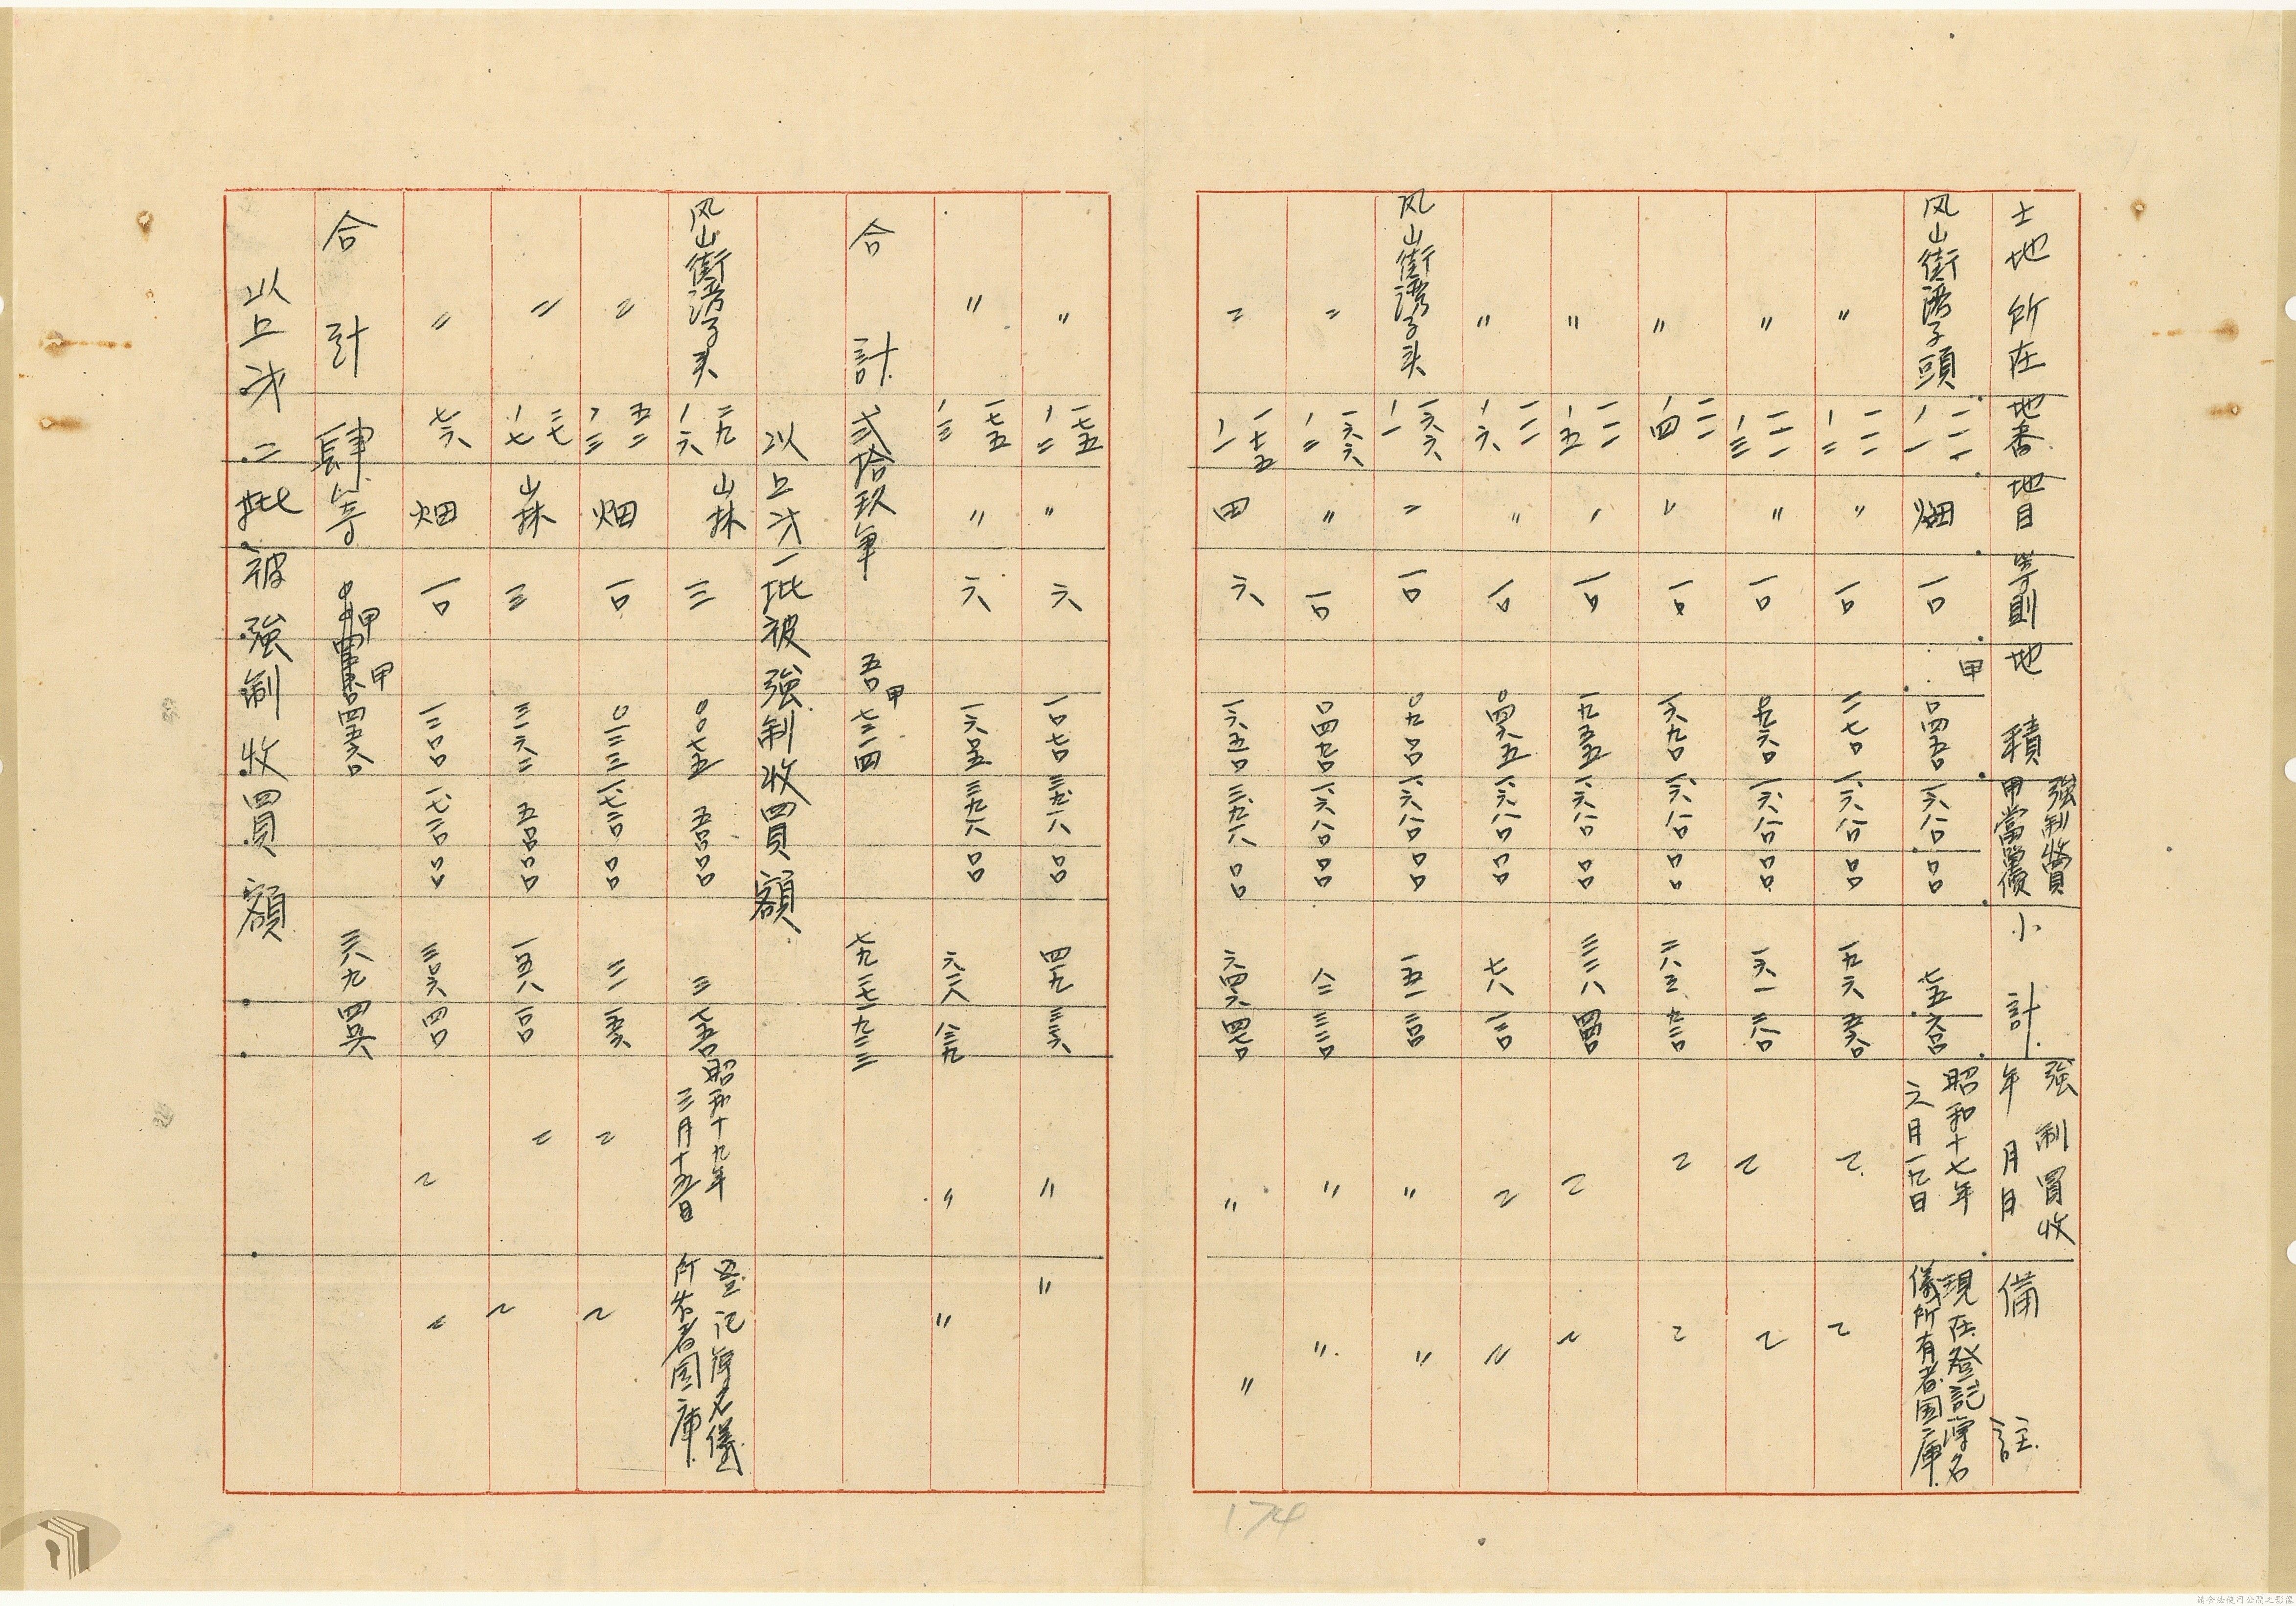 土地所在 地番 地目 等則 地積 強制買收甲當單價 小計 強制買收年月日 備註
甲
风山街湾子頭 一一一ノ一 畑 一〇 〇四五〇 一六八〇 〇〇 七五 六〇 昭和十七年六月一九日 現在登記簿名儀所有者国庫
〃 一一一ノ二 〃 一〇 一一七〇 一六八〇 〇〇 一九六 五六〇 〃 〃
〃 一一一ノ三 〃 一〇 〇九六〇 一六八〇 〇〇 一六一 二八〇 〃 〃
〃 一一一ノ四 〃 一〇 一六九〇 一六八〇 〇〇 二八三 九二〇 〃 〃
〃 一一一ノ五 〃 一〇 一九五五 一六八〇 〇〇 三二八 四四〇 〃 〃
〃 一一一ノ六 〃 一〇 〇四六五 一六八〇 〇〇 七八 一二〇 〃 〃
风山街湾子头 一六六ノ一 〃 一〇 〇九〇〇 一六八〇 〇〇 一五一 二〇 〃 〃
〃 一六六ノ二 〃 一〇 〇四九〇 一六八〇 〇〇 八二 三二〇 〃 〃
〃 一七五ノ一 田 六 一六五〇 三九一八 〇〇 六四六 四七〇 〃 〃
174
〃 一七五ノ二 〃 六 一〇七〇 三九一八 〇〇 四一九 二二六 〃 〃
〃 一七五ノ三 〃 六 一六〇五 三九一八 〇〇 六二八 八三九 〃 〃
合計 弍拾玖筆 五〇甲七三一四 七九一三七 九二三
以上才一批被強制收買額
风山街湾子头 二九ノ六 山林 三 〇〇七五 五〇〇 〇〇 三 七五〇 昭和十九年三月十五日 登记簿名儀所有者国庫
〃 五二ノ三 畑 一〇 〇一二三 一七二〇 〇〇 二一 一五六 〃 〃
〃 三七ノ七 山林 三 三一六二 五〇〇 〇〇 一五八 一〇〇 〃 〃
〃 七六 畑 一〇 一二〇〇 一七二〇 〇〇 二〇六 四〇 〃 〃
合計 肆筆 甲 甲 四五六〇 三八九 四〇六
以上才二批被強制收買額
請合法使用公開之影像